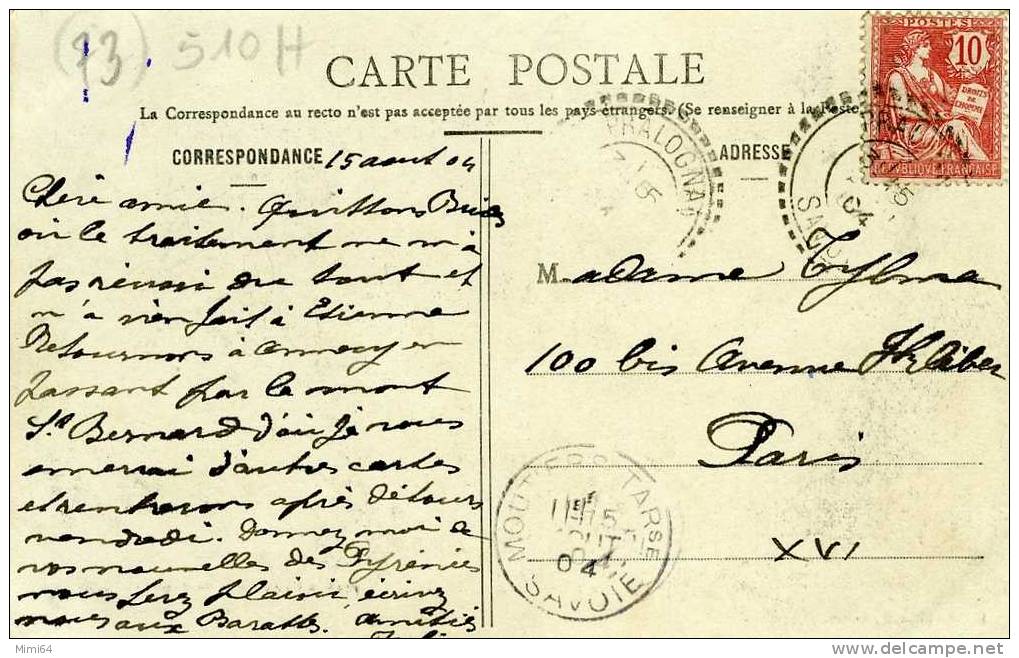 (73) 510H
CARTE POSTALE
La Correspondance au recto n'est pas acceptée par tous les pays étrangers. (Se renseigner à la Poste
CORRESPONDANCE
ADRESSE
15 aout 04
Chère amie. Quittons Brides
où le traitement ne m'a
pas réussi du tout et
n'a rien fait à Etienne
Retournons à Annecy en
passant par le mont
St Bernard d'où je vous
enverrai d'autres cartes
et rentrerons après détours
vendredi. Donnez moi de
vos nouvelles des Pyrénées
vous ferez plaisir, écrivez
nous aux Barattes. amitiés
Madame Tylma
100 bis Avenue Kléber
Paris
XVI
POSTES
10
DROITS DE L'HOMME
REPUBLIQUE FRANÇAISE
PRALOGNAN
SAVOIE
04
MOUTIERS TARSE
15
AOUT
04
SAVOIE
Mimi64
delcampe.net